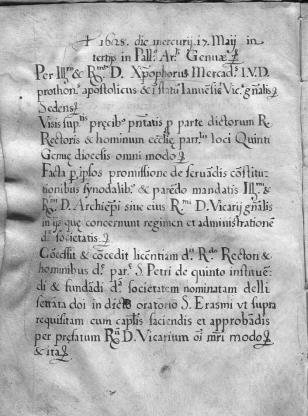 † 1628. die mercurij 17. Maij in
tertijs in Pall.º Ar.li Genuæ
Per Ill.m & R.m D. Xp̃ophorus Mercad.s I.V.D.
prothon.s apostolicus & i statu Ianueñsi Vic.s gñalis
Sedens
Visis sup.tis p̃cibꝰ pñtatis p parte dictorum R.
Rectoris & hominum ecclie par.lis loci Quinti
Genue diocesis omni modo
Facta p ip̃sos promissione de seruãdis cõstitu
tionibus synodalibꝰ & parẽdo mandatis Ill.mi &
R.mi D. Archiep̃i siue eius R.mi D. Vicarij gñalis
in ijs que concernunt regimen et administrationẽ
d.e societatis
Cõcessit & cõcedit licentiam d.o R.do Rectori &
hominibus d.e par.e S. Petri de quinto instituẽ
di & fundãdi d.a societatem nominatam delli
serrata doi in dicto oratorio S. Erasmi vt supra
requisitam cum cap̃lis faciendis et approbãdis
per prefatum R.m D. Vicarium oi mri modo
& ita